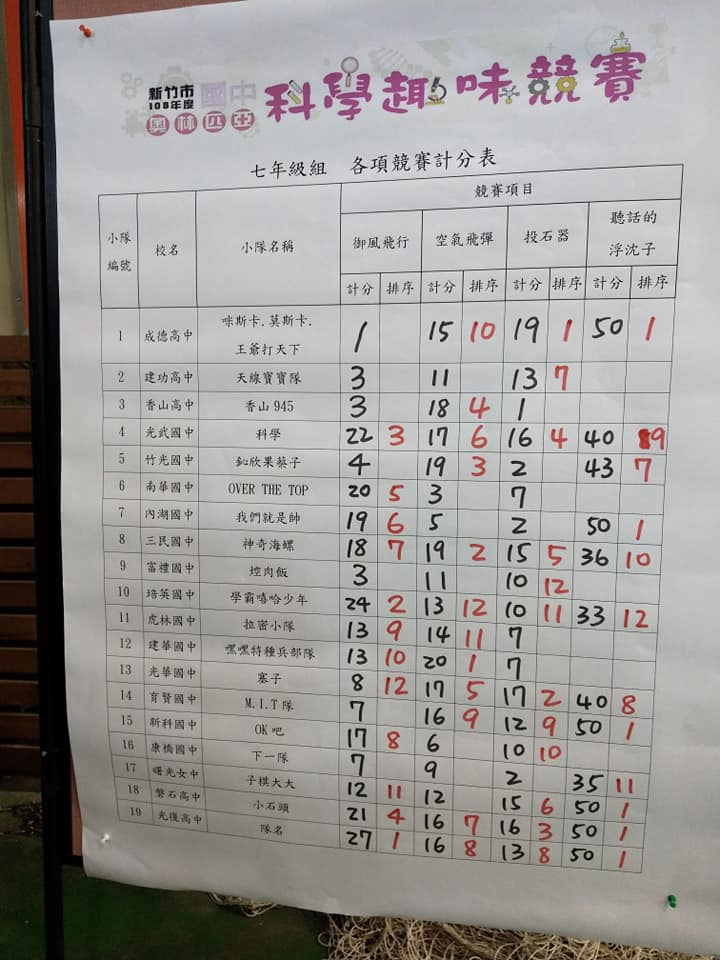 新竹市
108年度
國中
奧林匹亞
科學趣味競賽
七年級組 各項競賽計分表
小隊編號 校名 小隊名稱 競賽項目
御風飛行 空氣飛彈 投石器 聽話的浮沈子
計分 排序 計分 排序 計分 排序 計分 排序
1 成德高中 咪斯卡.莫斯卡.王爺打天下 1 15 10 19 1 50 1
2 建功高中 天線寶寶隊 3 11 13 7
3 香山高中 香山945 3 18 4 1
4 光武國中 科學 22 3 17 6 16 4 40 9
5 竹光國中 欣果蔡子 4 19 3 2 43 7
6 南華國中 OVER THE TOP 20 5 3 7
7 內湖國中 我們就是帥 19 6 5 2 50 1
8 三民國中 神奇海螺 18 7 19 2 15 5 36 10
9 富禮國中 焢肉飯 3 11 10 12
10 培英國中 學霸嘻哈少年 24 2 13 12 10 11 33 12
11 虎林國中 拉密小隊 13 9 14 11 7
12 建華國中 嘿嘿特種兵部隊 13 10 20 1 7
13 光華國中 塞子 8 12 17 5 17 2 40 8
14 育賢國中 M.I.T隊 7 16 9 12 9 50 1
15 新科國中 OK吧 17 8 6 10 10
16 康橋國中 下一隊 7 9 2 35 11
17 曙光女中 子棋大大 12 11 12 15 6 50 1
18 磐石高中 小石頭 21 4 16 7 16 3 50 1
19 光復高中 隊名 27 1 16 8 13 8 50 1